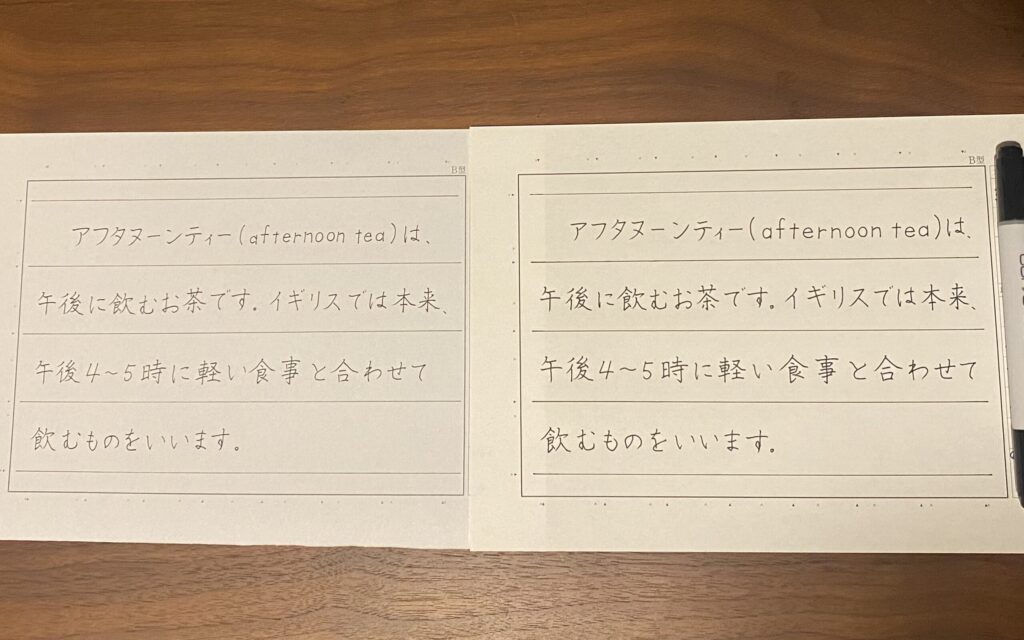 B型
アフタヌーンティー(afternoon tea)は、
午後に飲むお茶です。イギリスでは本来、
午後4～5時に軽い食事と合わせて
飲むものをいいます。
B型
アフタヌーンティー(afternoon tea)は、
午後に飲むお茶です。イギリスでは本来、
午後4～5時に軽い食事と合わせて
飲むものをいいます。